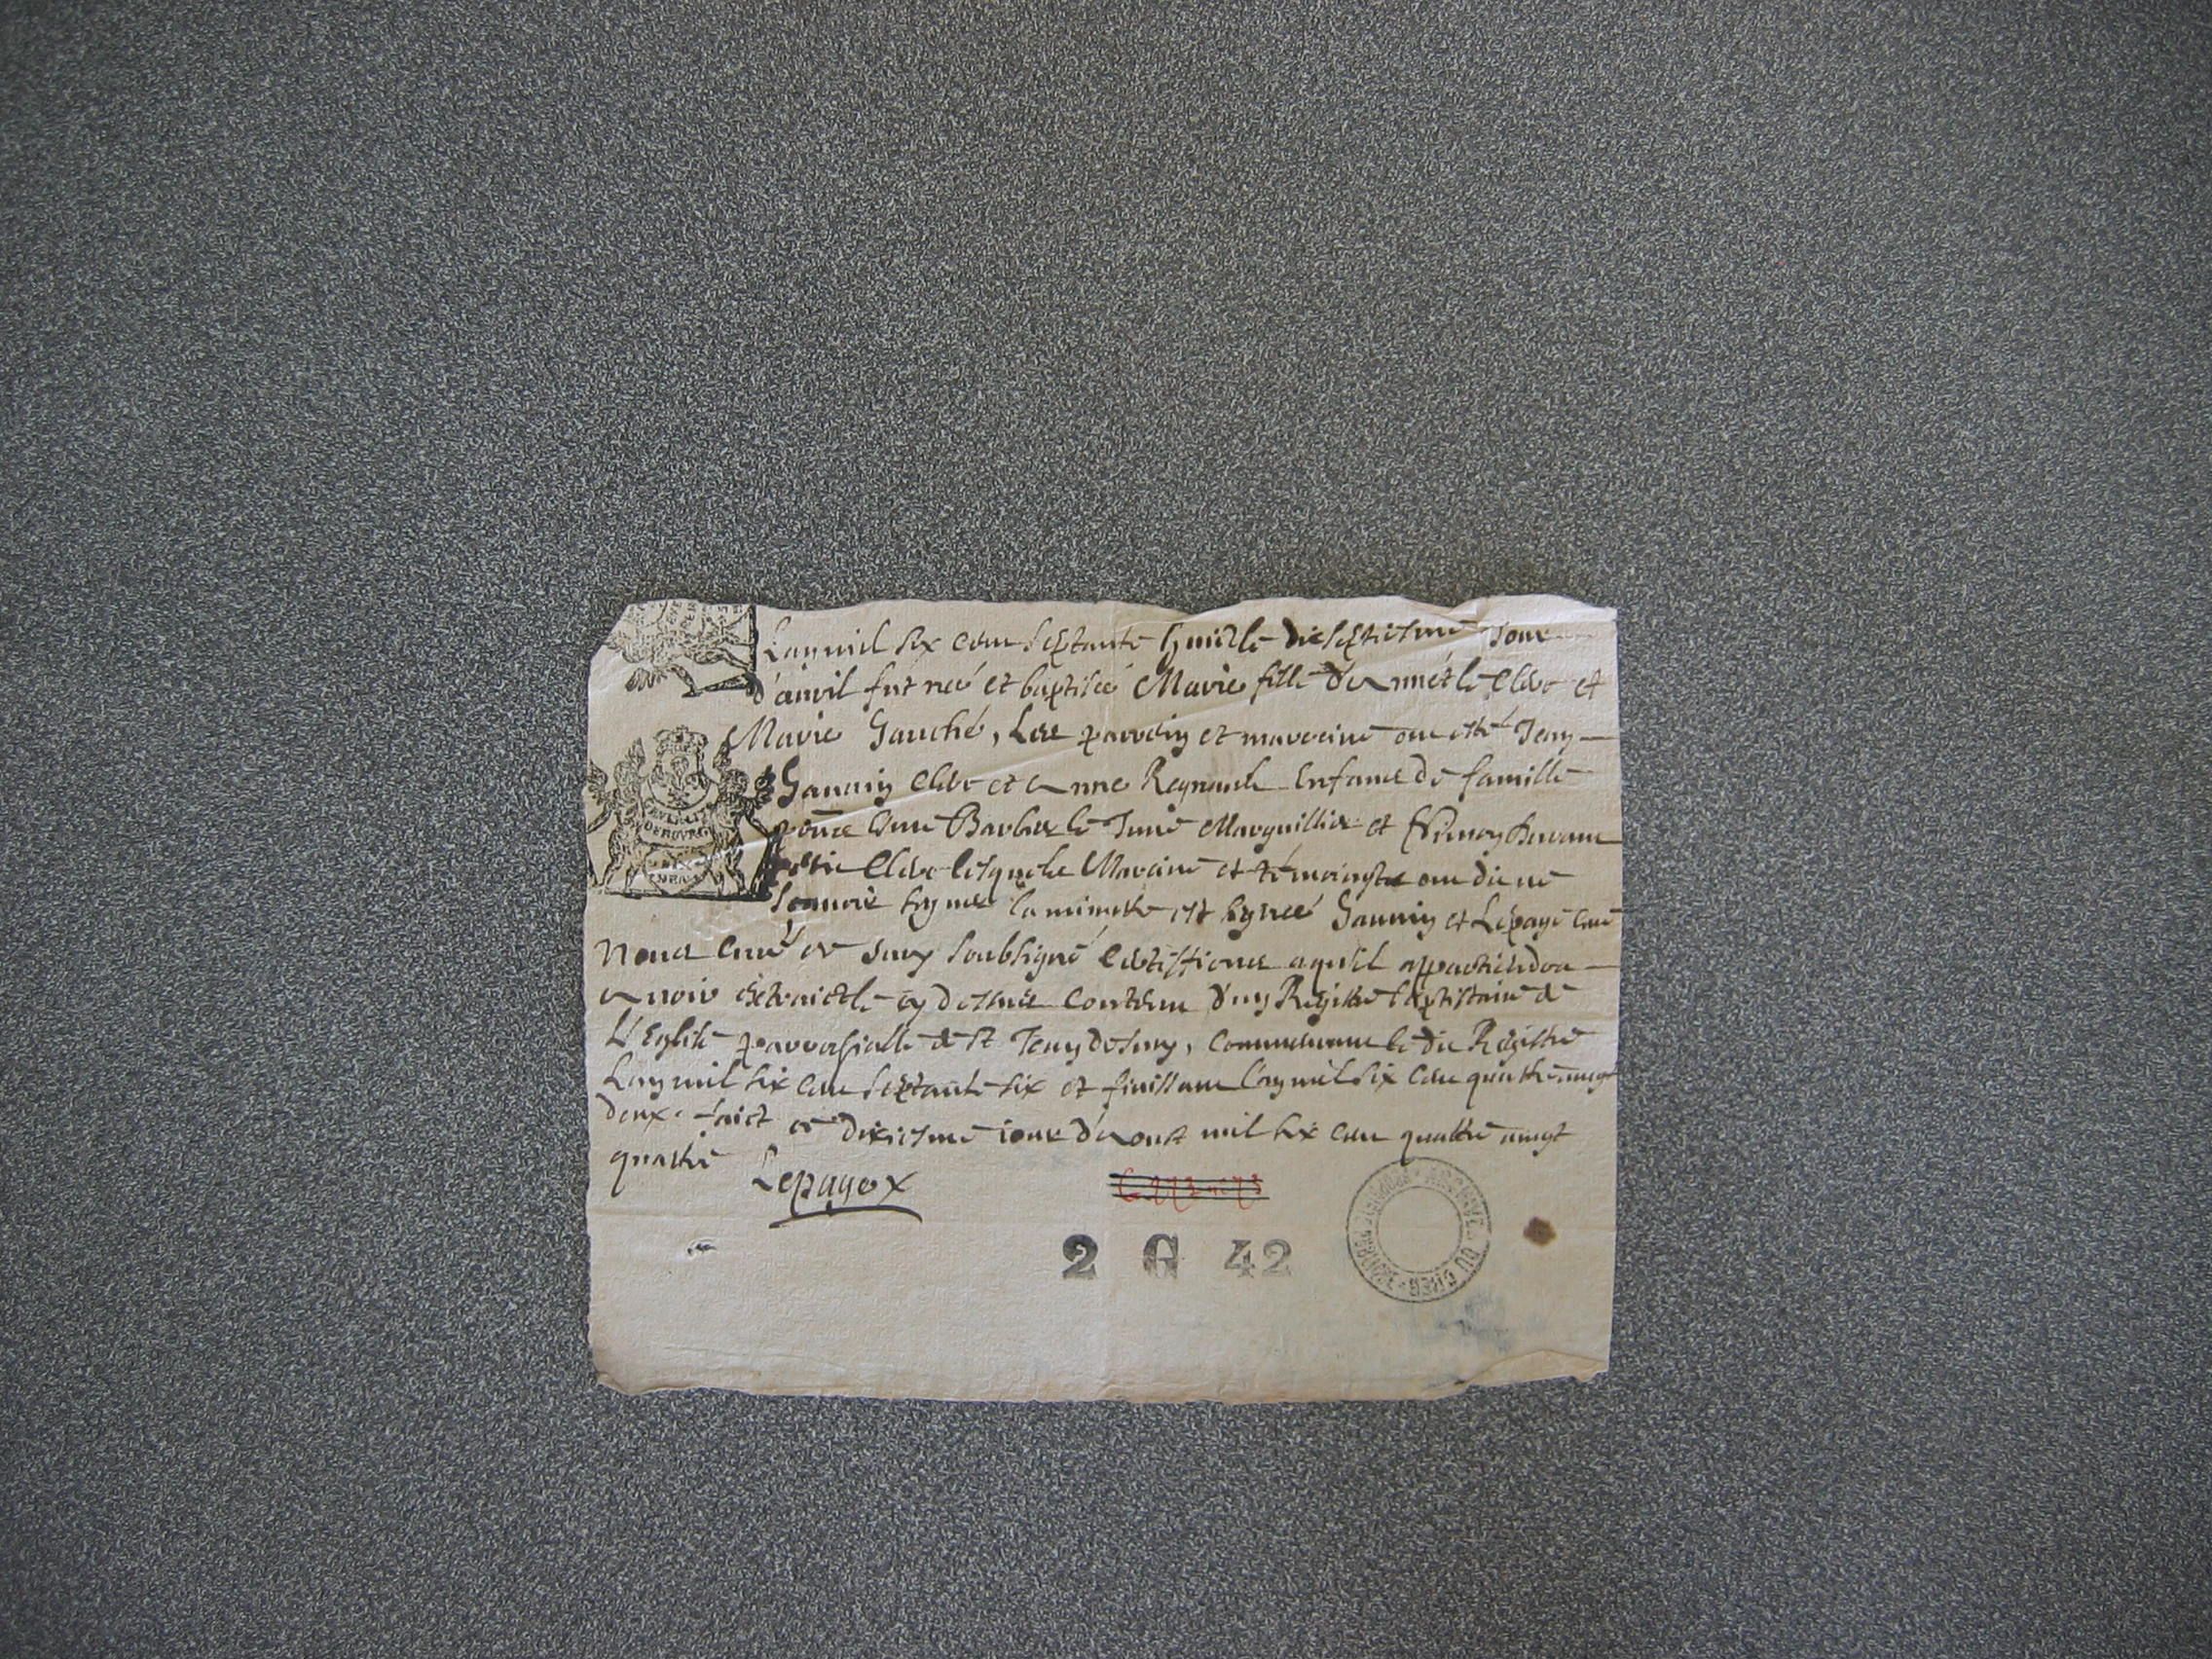 Lan mil six cens septante huict le diseptiesme Jour
d'auril fut neé et baptiseé Marie fille d'Annet le Clerc et
Marie Gauché, Les parrein et marreine ont esté Jean
Gauuin Clerc et Anne Regnault Enfans de famille
Barbier le Jeune Marguillier et
Clerc lesquels Mareine et témoingts ont dit ne
sçauoir signer la minutte est signeé Gauuin et Lepage curé
Nous Curé de Sury soubsigné Certiffions a qu'il appartiendra
auoir extraict le cy dessus Contenu d'un Registre baptistaire de
L'Eglise parrossialle de St Jean de Sury, Commencant le dit Registre
Lan mil six cens septante six et finissant Lan mil six cens quattre uingt
deux. faict ce dixiesme iour d'Aoust mil six cens quattre uingt
quattre
Lepage
2 G 42
ARCHIVES DU CHER